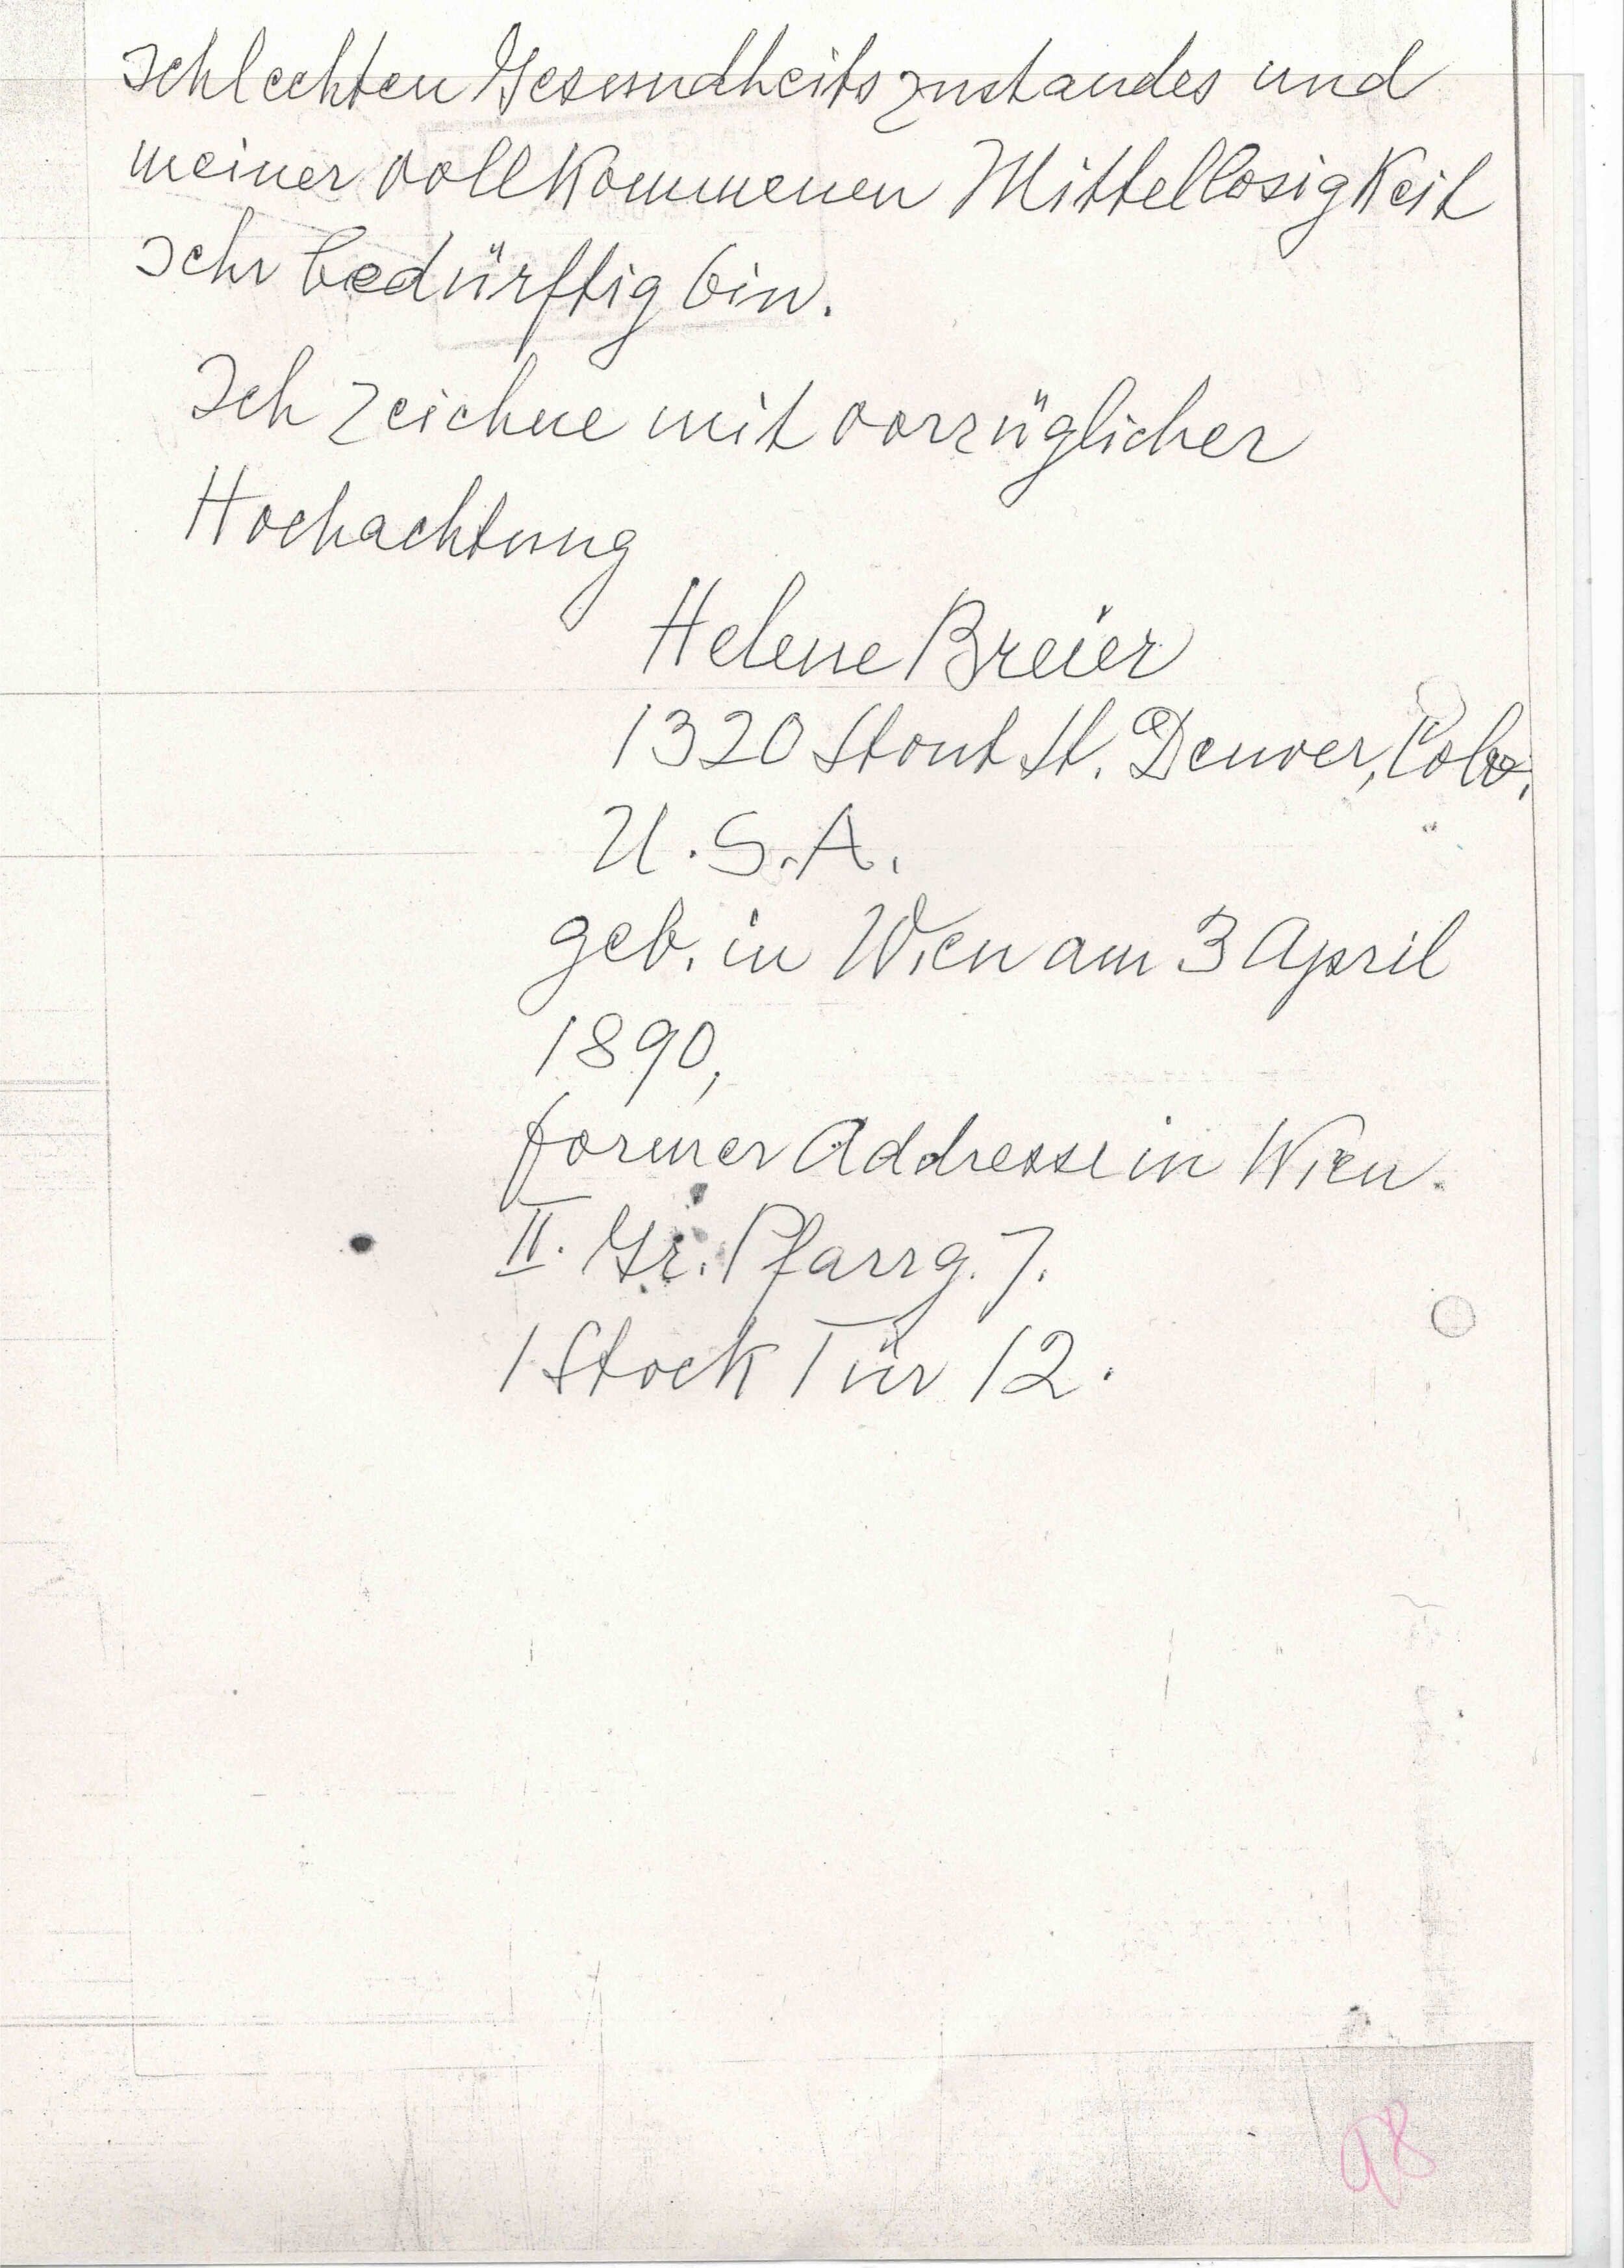 schlechten Gesundheitszustandes und
meiner vollkommenen Mittellosigkeit
sehr bedürftig bin.
Ich zeichne mit vorzüglicher
Hochachtung
Helene Breier
1320 Stout St. Denver, Colo.
U.S.A.
geb. in Wien am 3 April
1890,
former Addresse in Wien.
II. Gr. Pfarrg. 7.
1 Stock Tür 12.
98